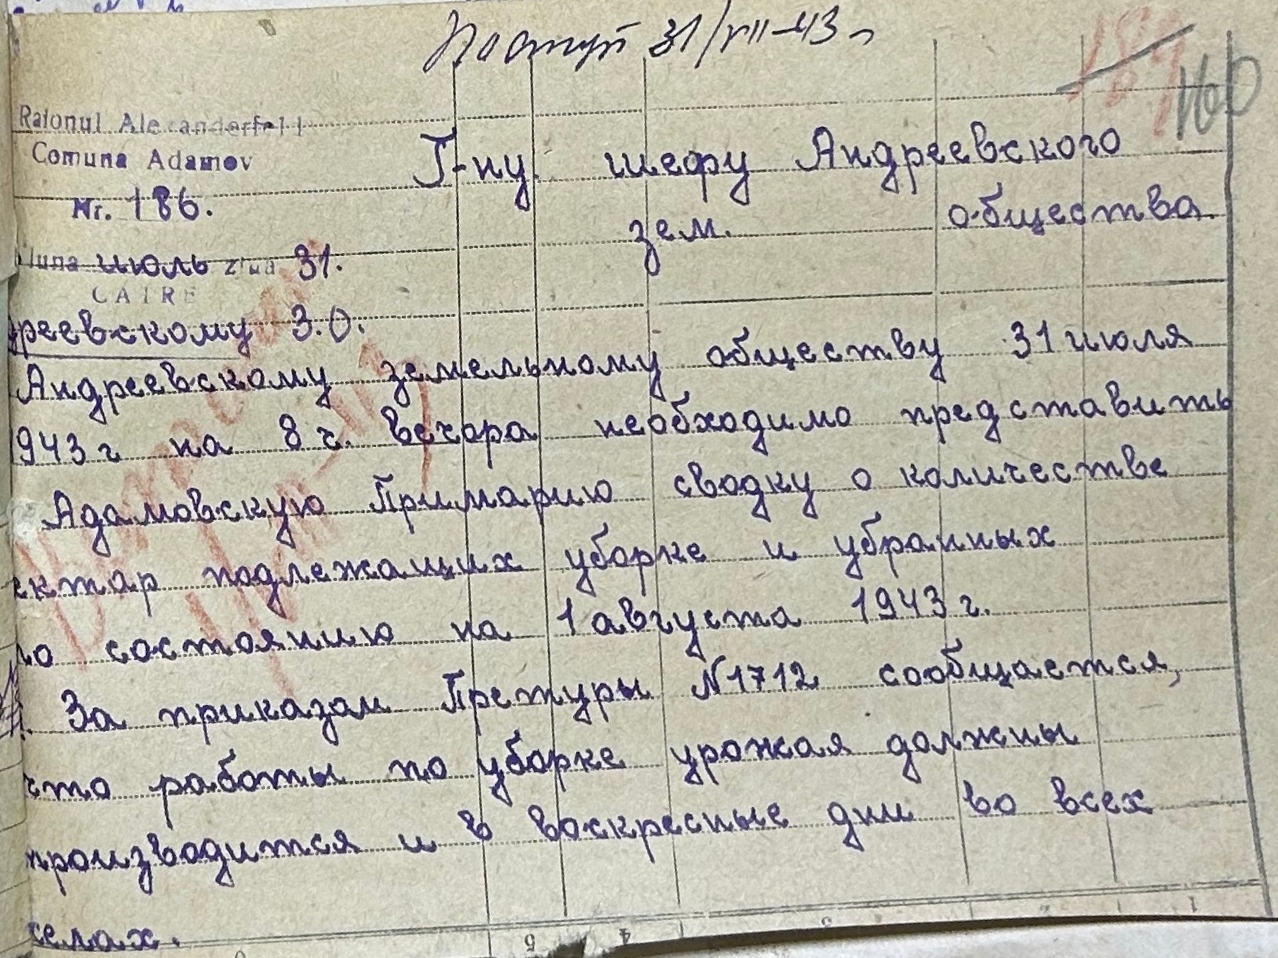 Поступ 31/VII-43 г
160
Raionul Alexanderfeld
Comuna Adamov
Nr. 186.
Luna июль ziua 31.
CATRE
дреевскому З.О.
Г-ну шефу Андреевского
зем. общества
Андреевскому земельному обществу 31 июля
1943 г на 8 ч. вечора необходимо представить
Адамовскую Примарию сводку о количестве
ектар подлежащих уборке и убранных
по состоянию на 1 августа 1943 г.
За приказом Претуры N1712 сообщается,
что работы по уборке урожая должны
производится и в воскресные дни во всех
селах.